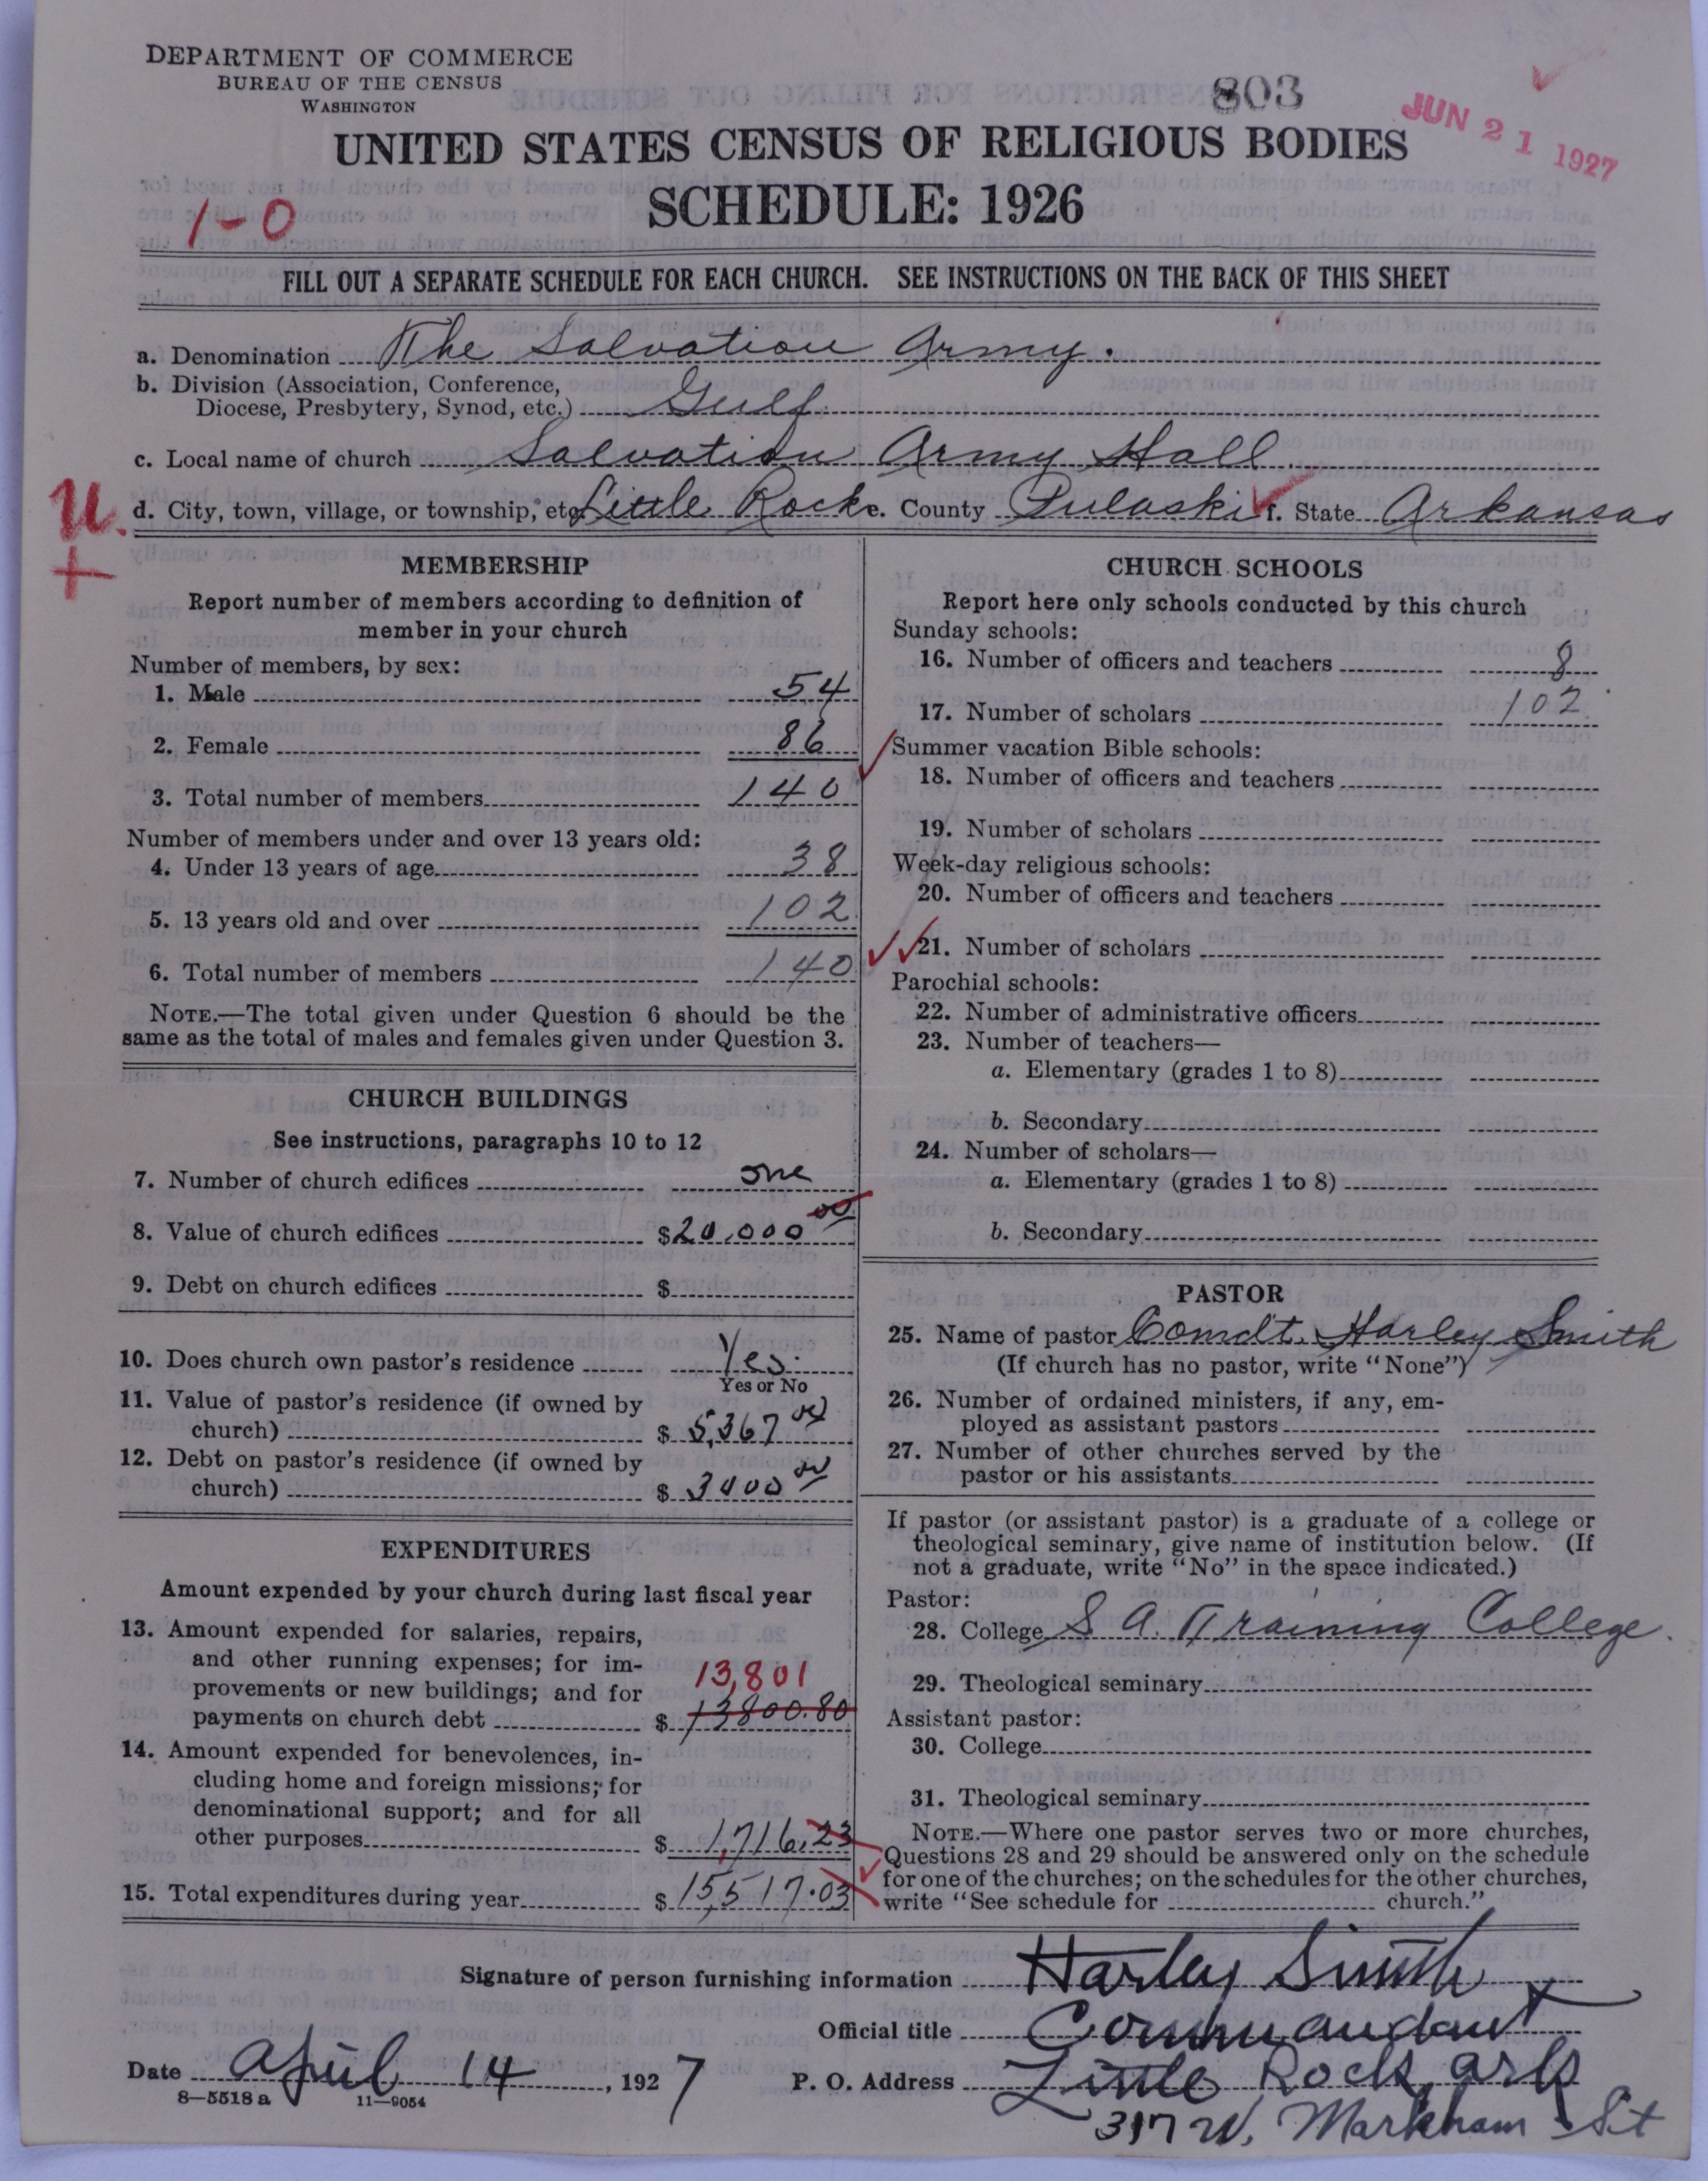 DEPARTMENT OF COMMERCE
BUREAU OF THE CENSUS
WASHINGTON
803
JUN 21 1927
UNITED STATES CENSUS OF RELIGIOUS BODIES
SCHEDULE: 1926
1-0
FILL OUT A SEPARATE SCHEDULE FOR EACH CHURCH. SEE INSTRUCTIONS ON THE BACK OF THIS SHEET
a. Denomination The Salvation Army.
b. Division (Association, Conference,
Diocese, Presbytery, Synod, etc.) Gulf.
c. Local name of church Salvation Army Hall
U. d. City, town, village, or township, etc. Little Rock e. County Pulaski f. State Arkansas
+
MEMBERSHIP
Report number of members according to definition of
member in your church
Number of members, by sex:
1. Male 54
2. Female 86
3. Total number of members 140
Number of members under and over 13 years old:
4. Under 13 years of age 38
5. 13 years old and over 102
6. Total number of members 140
NOTE.—The total given under Question 6 should be the
same as the total of males and females given under Question 3.
CHURCH BUILDINGS
See instructions, paragraphs 10 to 12
7. Number of church edifices one
8. Value of church edifices $20,000 00
9. Debt on church edifices $
10. Does church own pastor's residence Yes.
Yes or No
11. Value of pastor's residence (if owned by
church) $ 5,367 00
12. Debt on pastor's residence (if owned by
church) $ 3400 00
EXPENDITURES
Amount expended by your church during last fiscal year
13. Amount expended for salaries, repairs,
and other running expenses; for im-
provements or new buildings; and for 13,801
payments on church debt $ 13800.80
14. Amount expended for benevolences, in-
cluding home and foreign missions; for
denominational support; and for all
other purposes $ 1,716.23
15. Total expenditures during year $ 15,517.03
CHURCH SCHOOLS
Report here only schools conducted by this church
Sunday schools:
16. Number of officers and teachers 8
17. Number of scholars 102
Summer vacation Bible schools:
18. Number of officers and teachers
19. Number of scholars
Week-day religious schools:
20. Number of officers and teachers
21. Number of scholars
Parochial schools:
22. Number of administrative officers
23. Number of teachers—
a. Elementary (grades 1 to 8)
b. Secondary
24. Number of scholars—
a. Elementary (grades 1 to 8)
b. Secondary
PASTOR
25. Name of pastor Comdt. Harley Smith
(If church has no pastor, write "None")
26. Number of ordained ministers, if any, em-
ployed as assistant pastors
27. Number of other churches served by the
pastor or his assistants
If pastor (or assistant pastor) is a graduate of a college or
theological seminary, give name of institution below. (If
not a graduate, write "No" in the space indicated.)
Pastor:
28. College S A. Training College.
29. Theological seminary
Assistant pastor:
30. College
31. Theological seminary
NOTE.—Where one pastor serves two or more churches,
Questions 28 and 29 should be answered only on the schedule
for one of the churches; on the schedules for the other churches,
write "See schedule for church."
Signature of person furnishing information Harley Smith
Official title Commandant
Date April 14, 1927 P. O. Address Little Rock, Ark
8—5518 a 11—9054
317 W. Markham St